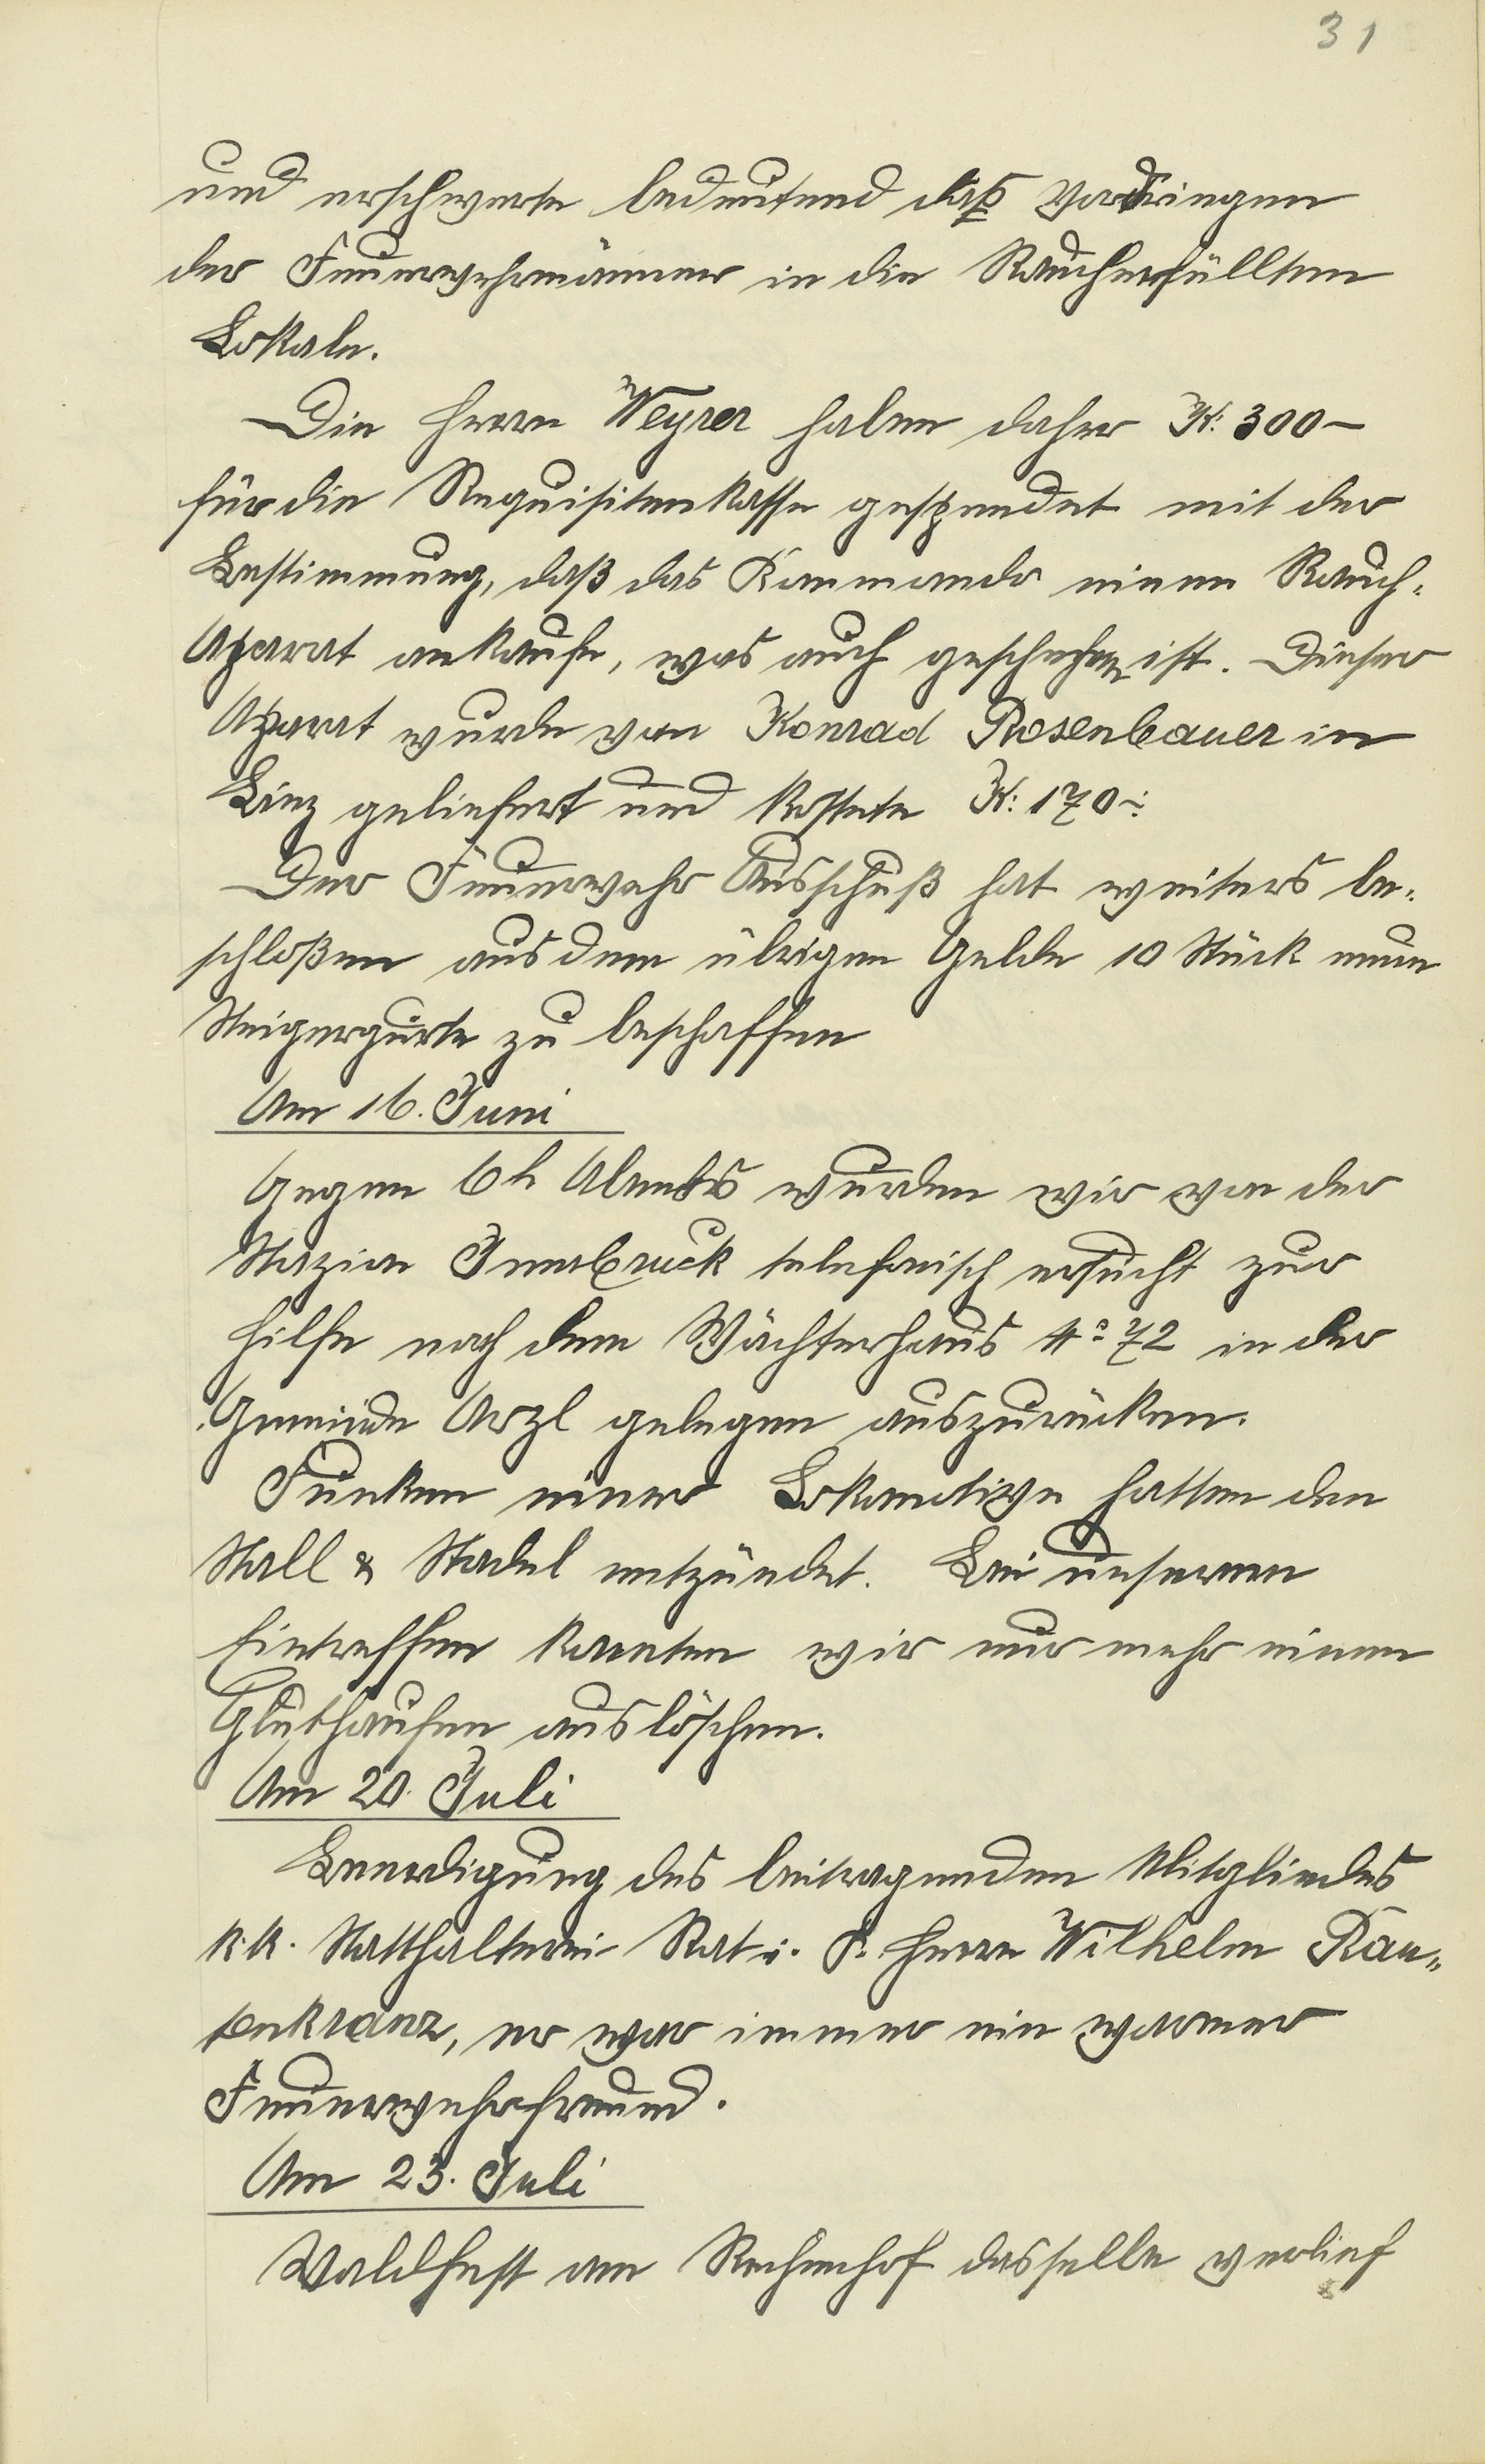 31
und erschwerte bedeutend daß Vordringen
der Feuerwehrmänner in die Raucherfüllten
Lokale.
Die Herrn Weyrer haben daher K: 300–
für die Requisitenkasse gespendet mit der
Bestimmung, daß das Kommando einen Rauch-
Aparat ankaufe, was auch geschehen ist. Dieser
Aparat wurde von Konrad Rosenbauer in
Linz geliefert und kostete K: 170–:
Der Feuerwehr Ausschuß hat weiters be-
schloßen aus dem übrigen Gelde 10 Stück neue
Steigergurte zu beschaffen
Am 16. Juni
Gegen 6h Abends wurden wir von der
Stazion Innsbruck telefonisch ersucht zur
Hilfe nach dem Wächterhaus No 72 in der
Gemeinde Arzl gelegen auszurücken.
Funken einer Lokomotive hatten den
Stall & Stadel entzündet. Bei unserem
Eintreffen konnten wir nur mehr einen
Gluthaufen auslöschen.
Am 20. Juli
Beerdigung des beitragenden Mitgliedes
k. k. Statthalterei Rat i. P. Herrn Wilhelm
er war immer ein warmer
Feuerwehrfreund.
Am 23. Juli
Waldfest am Rechenhof dasselbe verlief